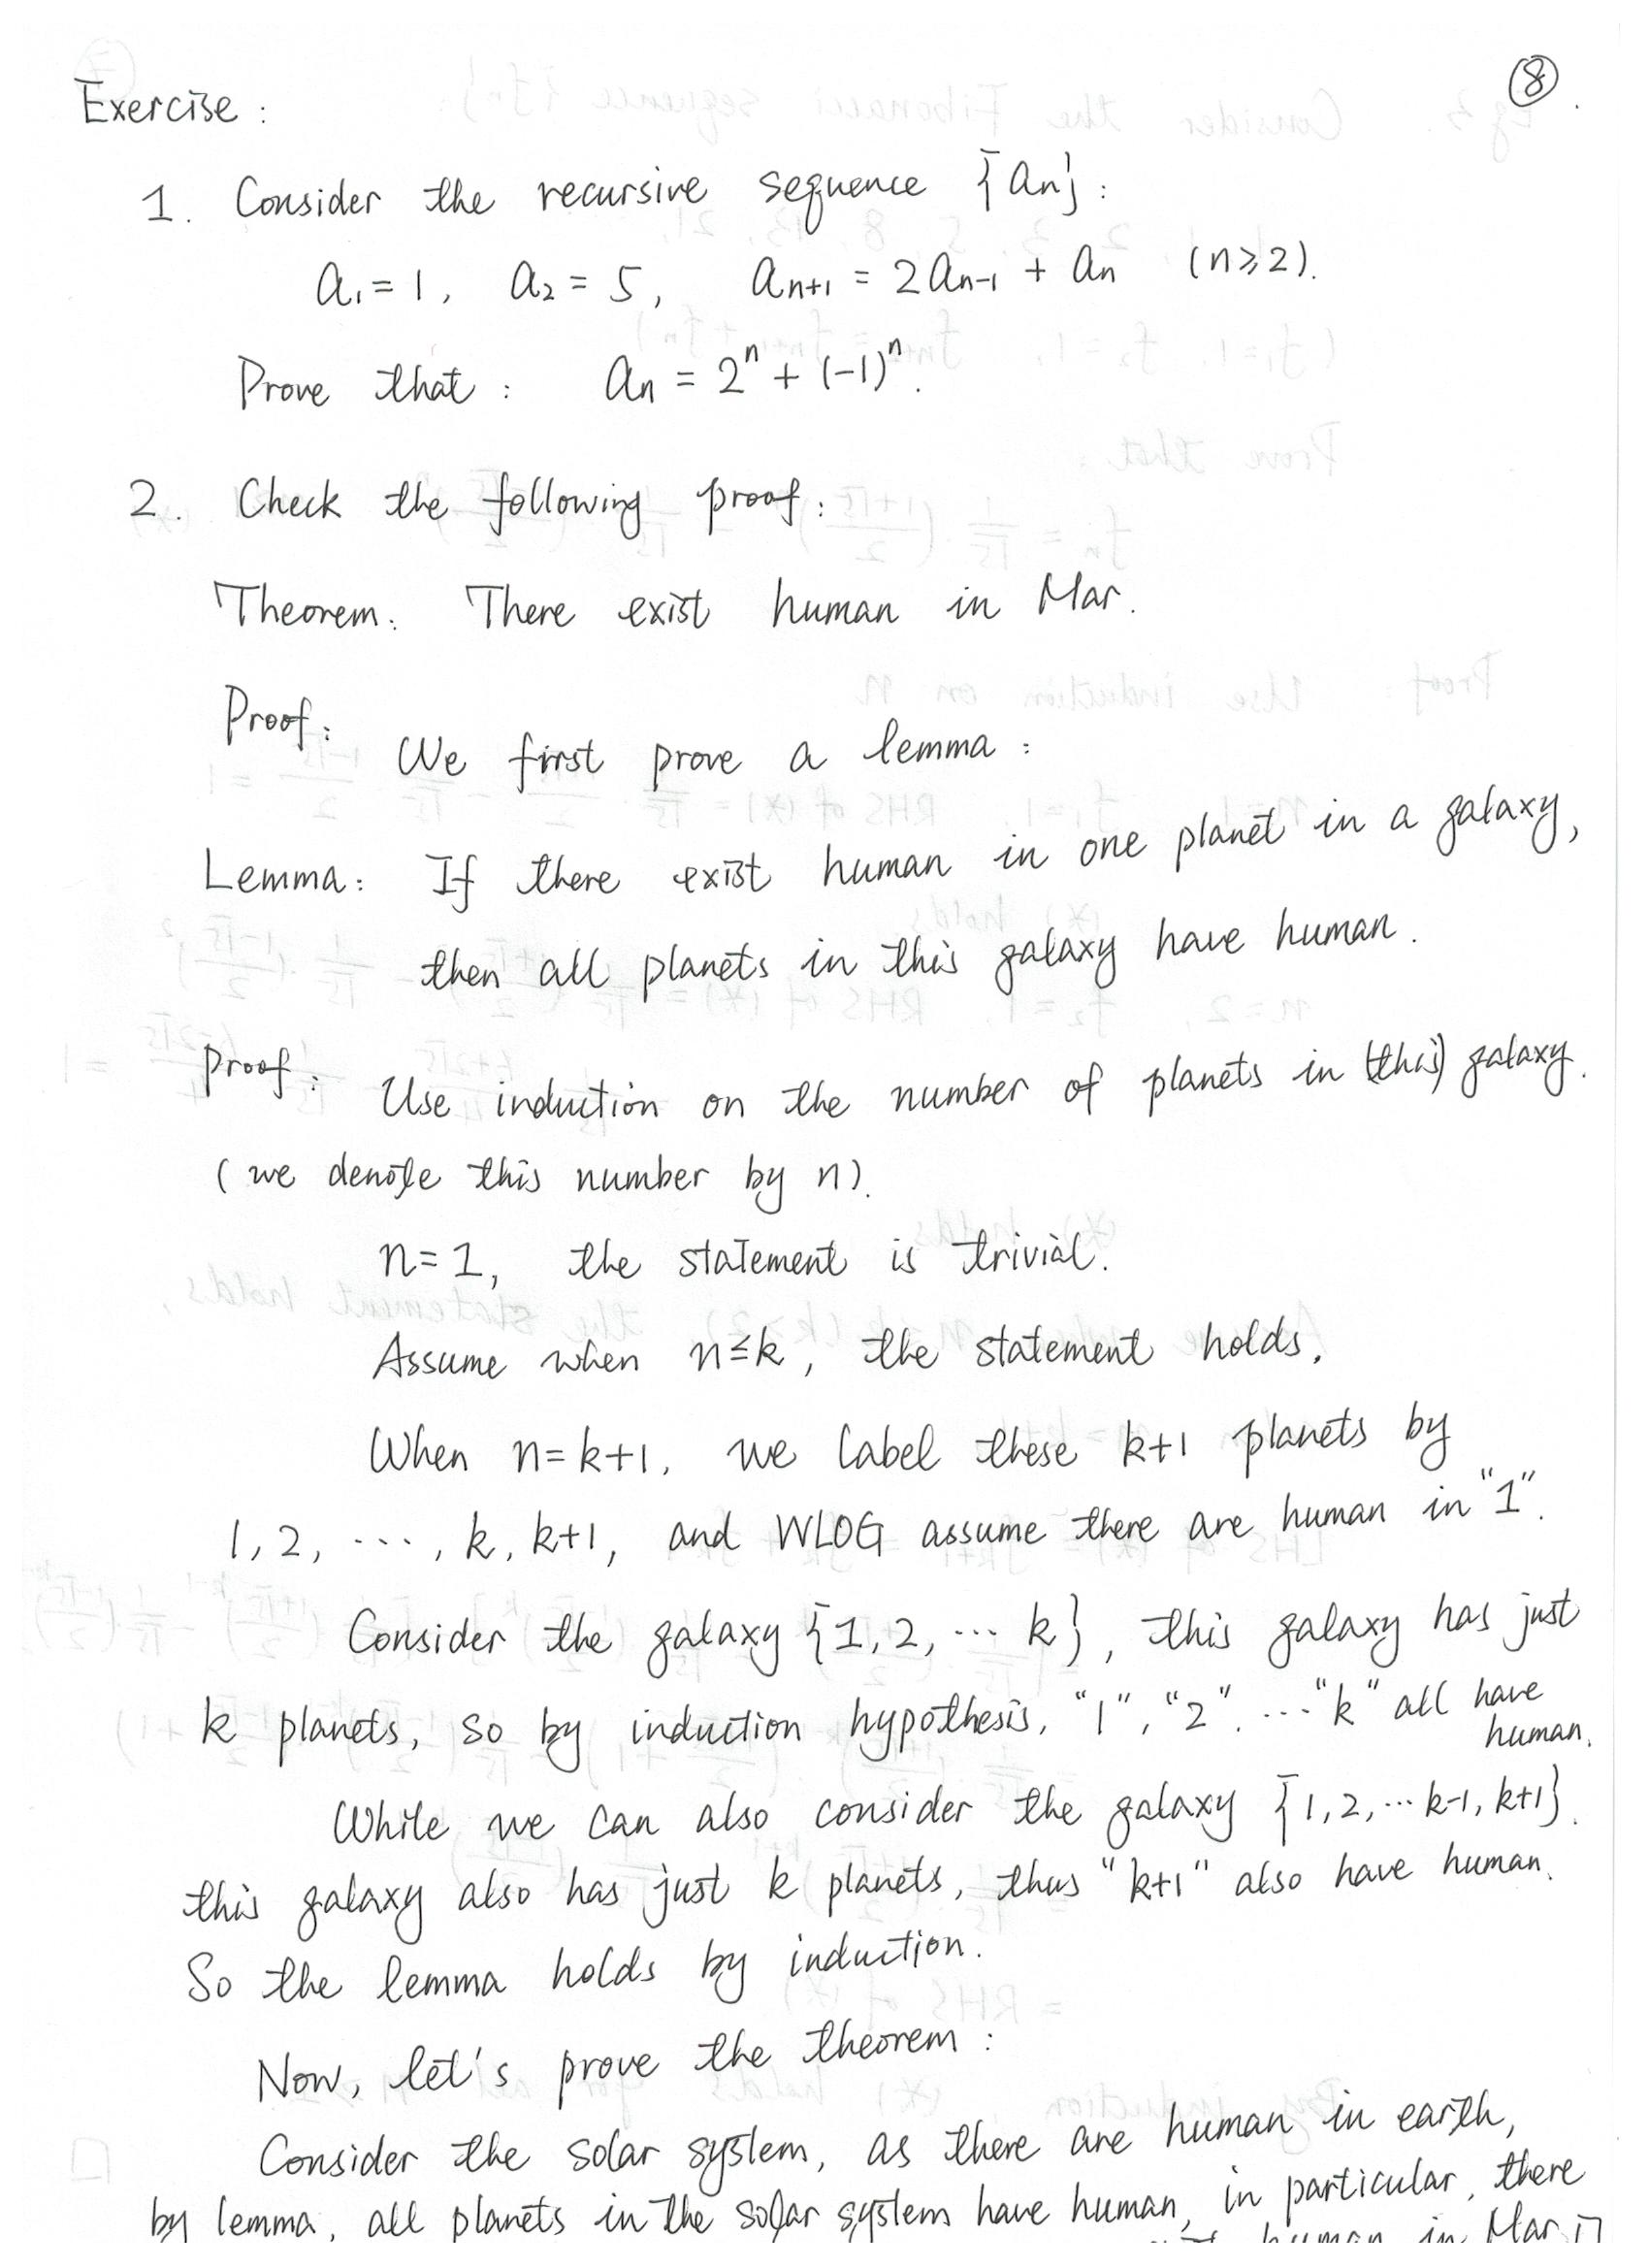 ⑧.
Exercise:
1. Consider the recursive sequence {an}:
a₁=1, a₂=5, aₙ₊₁ = 2aₙ₋₁ + aₙ (n≥2).
Prove that: aₙ = 2ⁿ + (-1)ⁿ.
2. Check the following proof:
Theorem: There exist human in Mar.
Proof:
We first prove a lemma:
Lemma: If there exist human in one planet in a galaxy,
then all planets in this galaxy have human.
Proof: Use induction on the number of planets in (this) galaxy.
(we denote this number by n).
n=1, the statement is trivial.
Assume when n≤k, the statement holds.
When n=k+1, we label these k+1 planets by
1, 2, ..., k, k+1, and WLOG assume there are human in "1".
Consider the galaxy {1, 2, ... k}, this galaxy has just
k planets, so by induction hypothesis, "1", "2", ... "k" all have
human.
While we can also consider the galaxy {1, 2, ... k-1, k+1}.
this galaxy also has just k planets, thus "k+1" also have human.
So the lemma holds by induction.
Now, let's prove the theorem:
Consider the solar system, as there are human in earth,
by lemma, all planets in the solar system have human, in particular, there
human in Mar. □